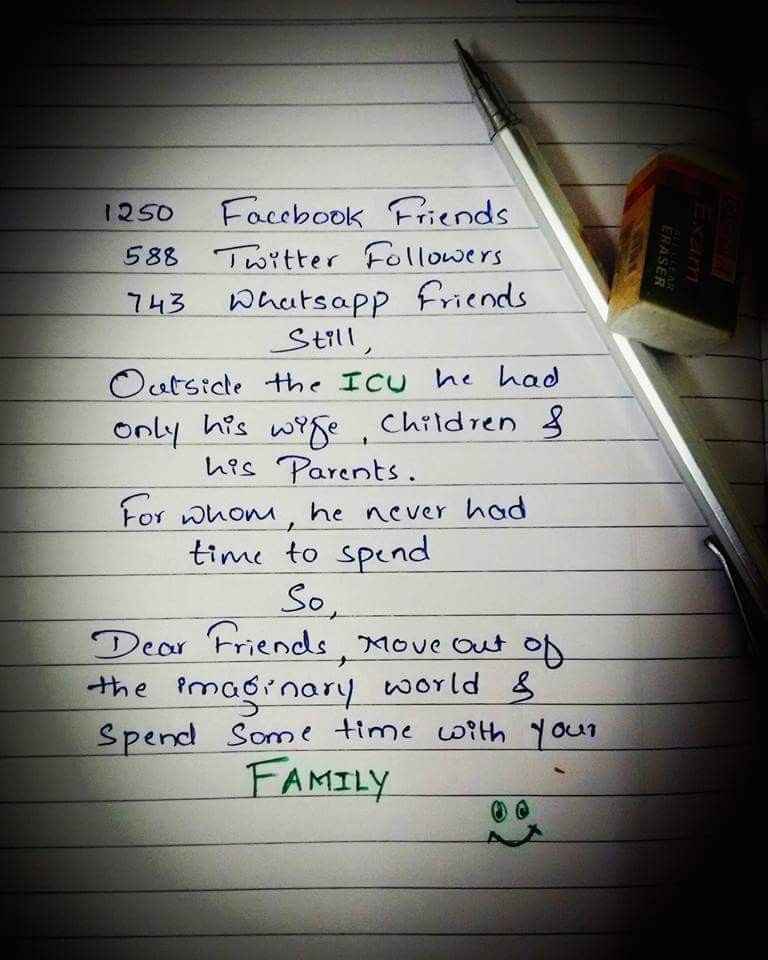 1250 Facebook Friends
588 Twitter Followers
743 Whatsapp Friends
Still,
Outside the ICU he had
only his wife, Children &
his Parents.
For whom, he never had
time to spend
So,
Dear Friends, Move out of
the imaginary world &
Spend Some time with your
FAMILY
Exam
ALL CLEAR
ERASER